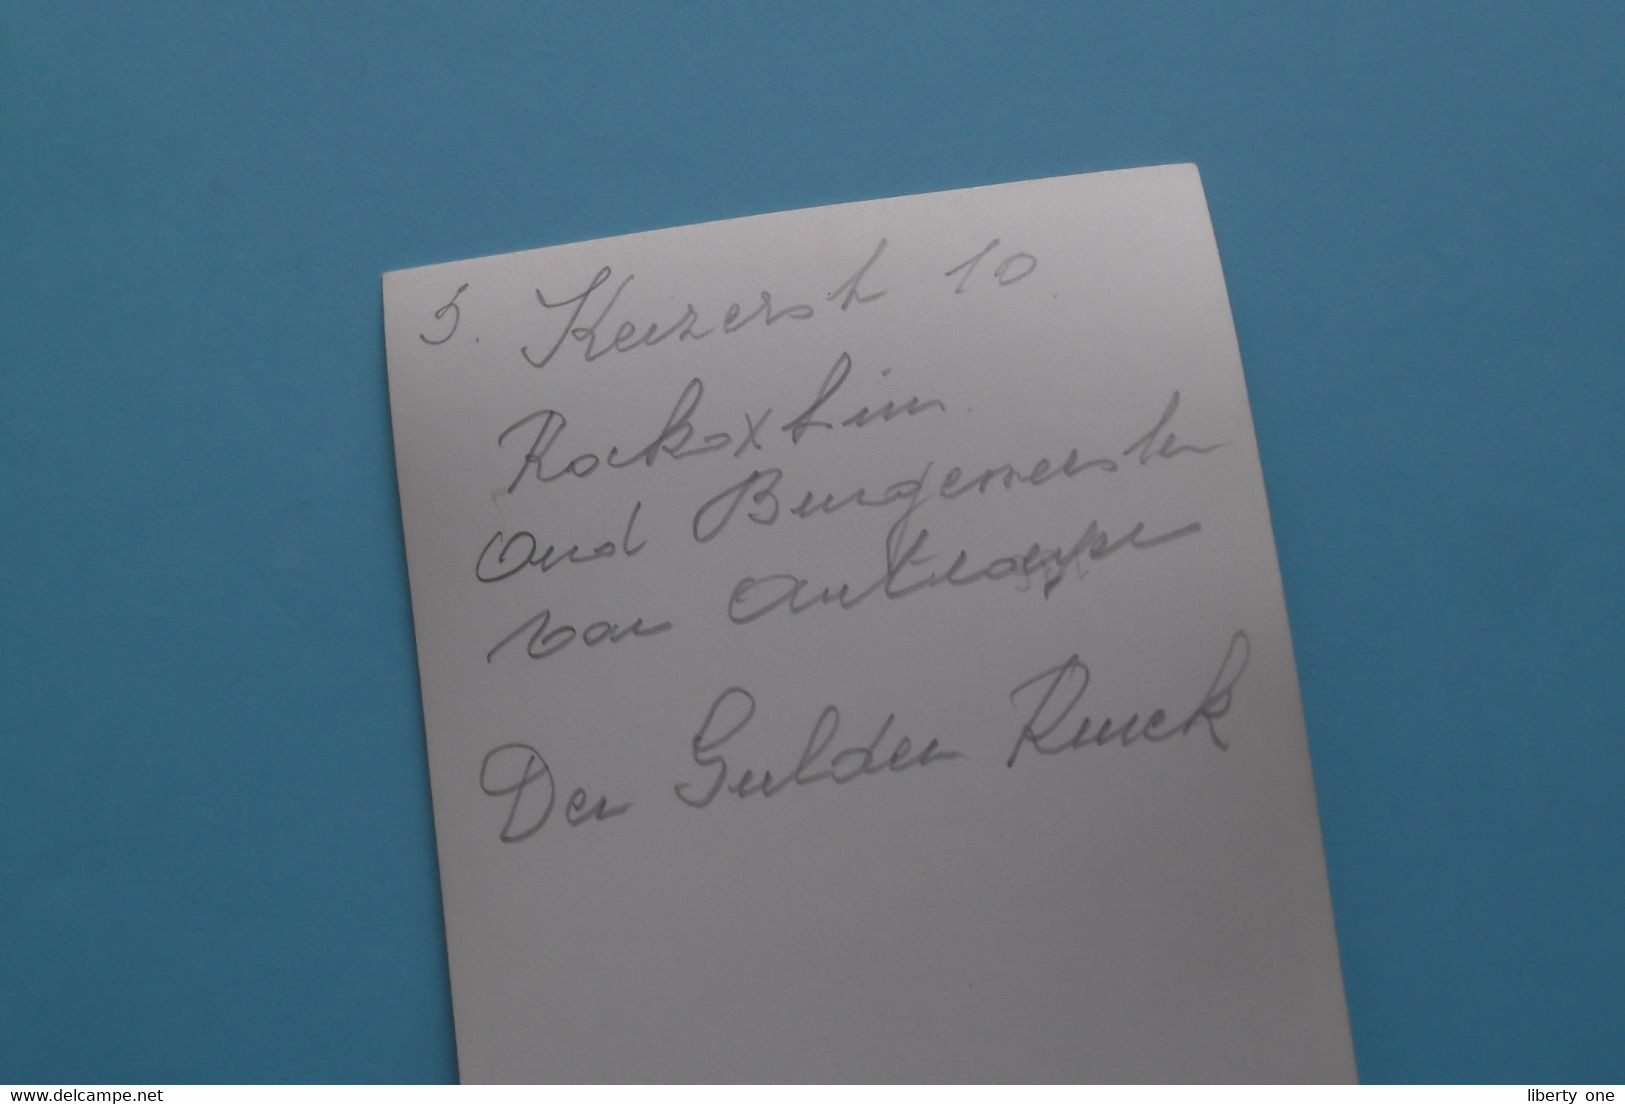 5. Keizerst 10
Rockoxhuis
Oud Burgemeester
van Antwerpen
Den Gulden Rinck
delcampe.net
liberty_one